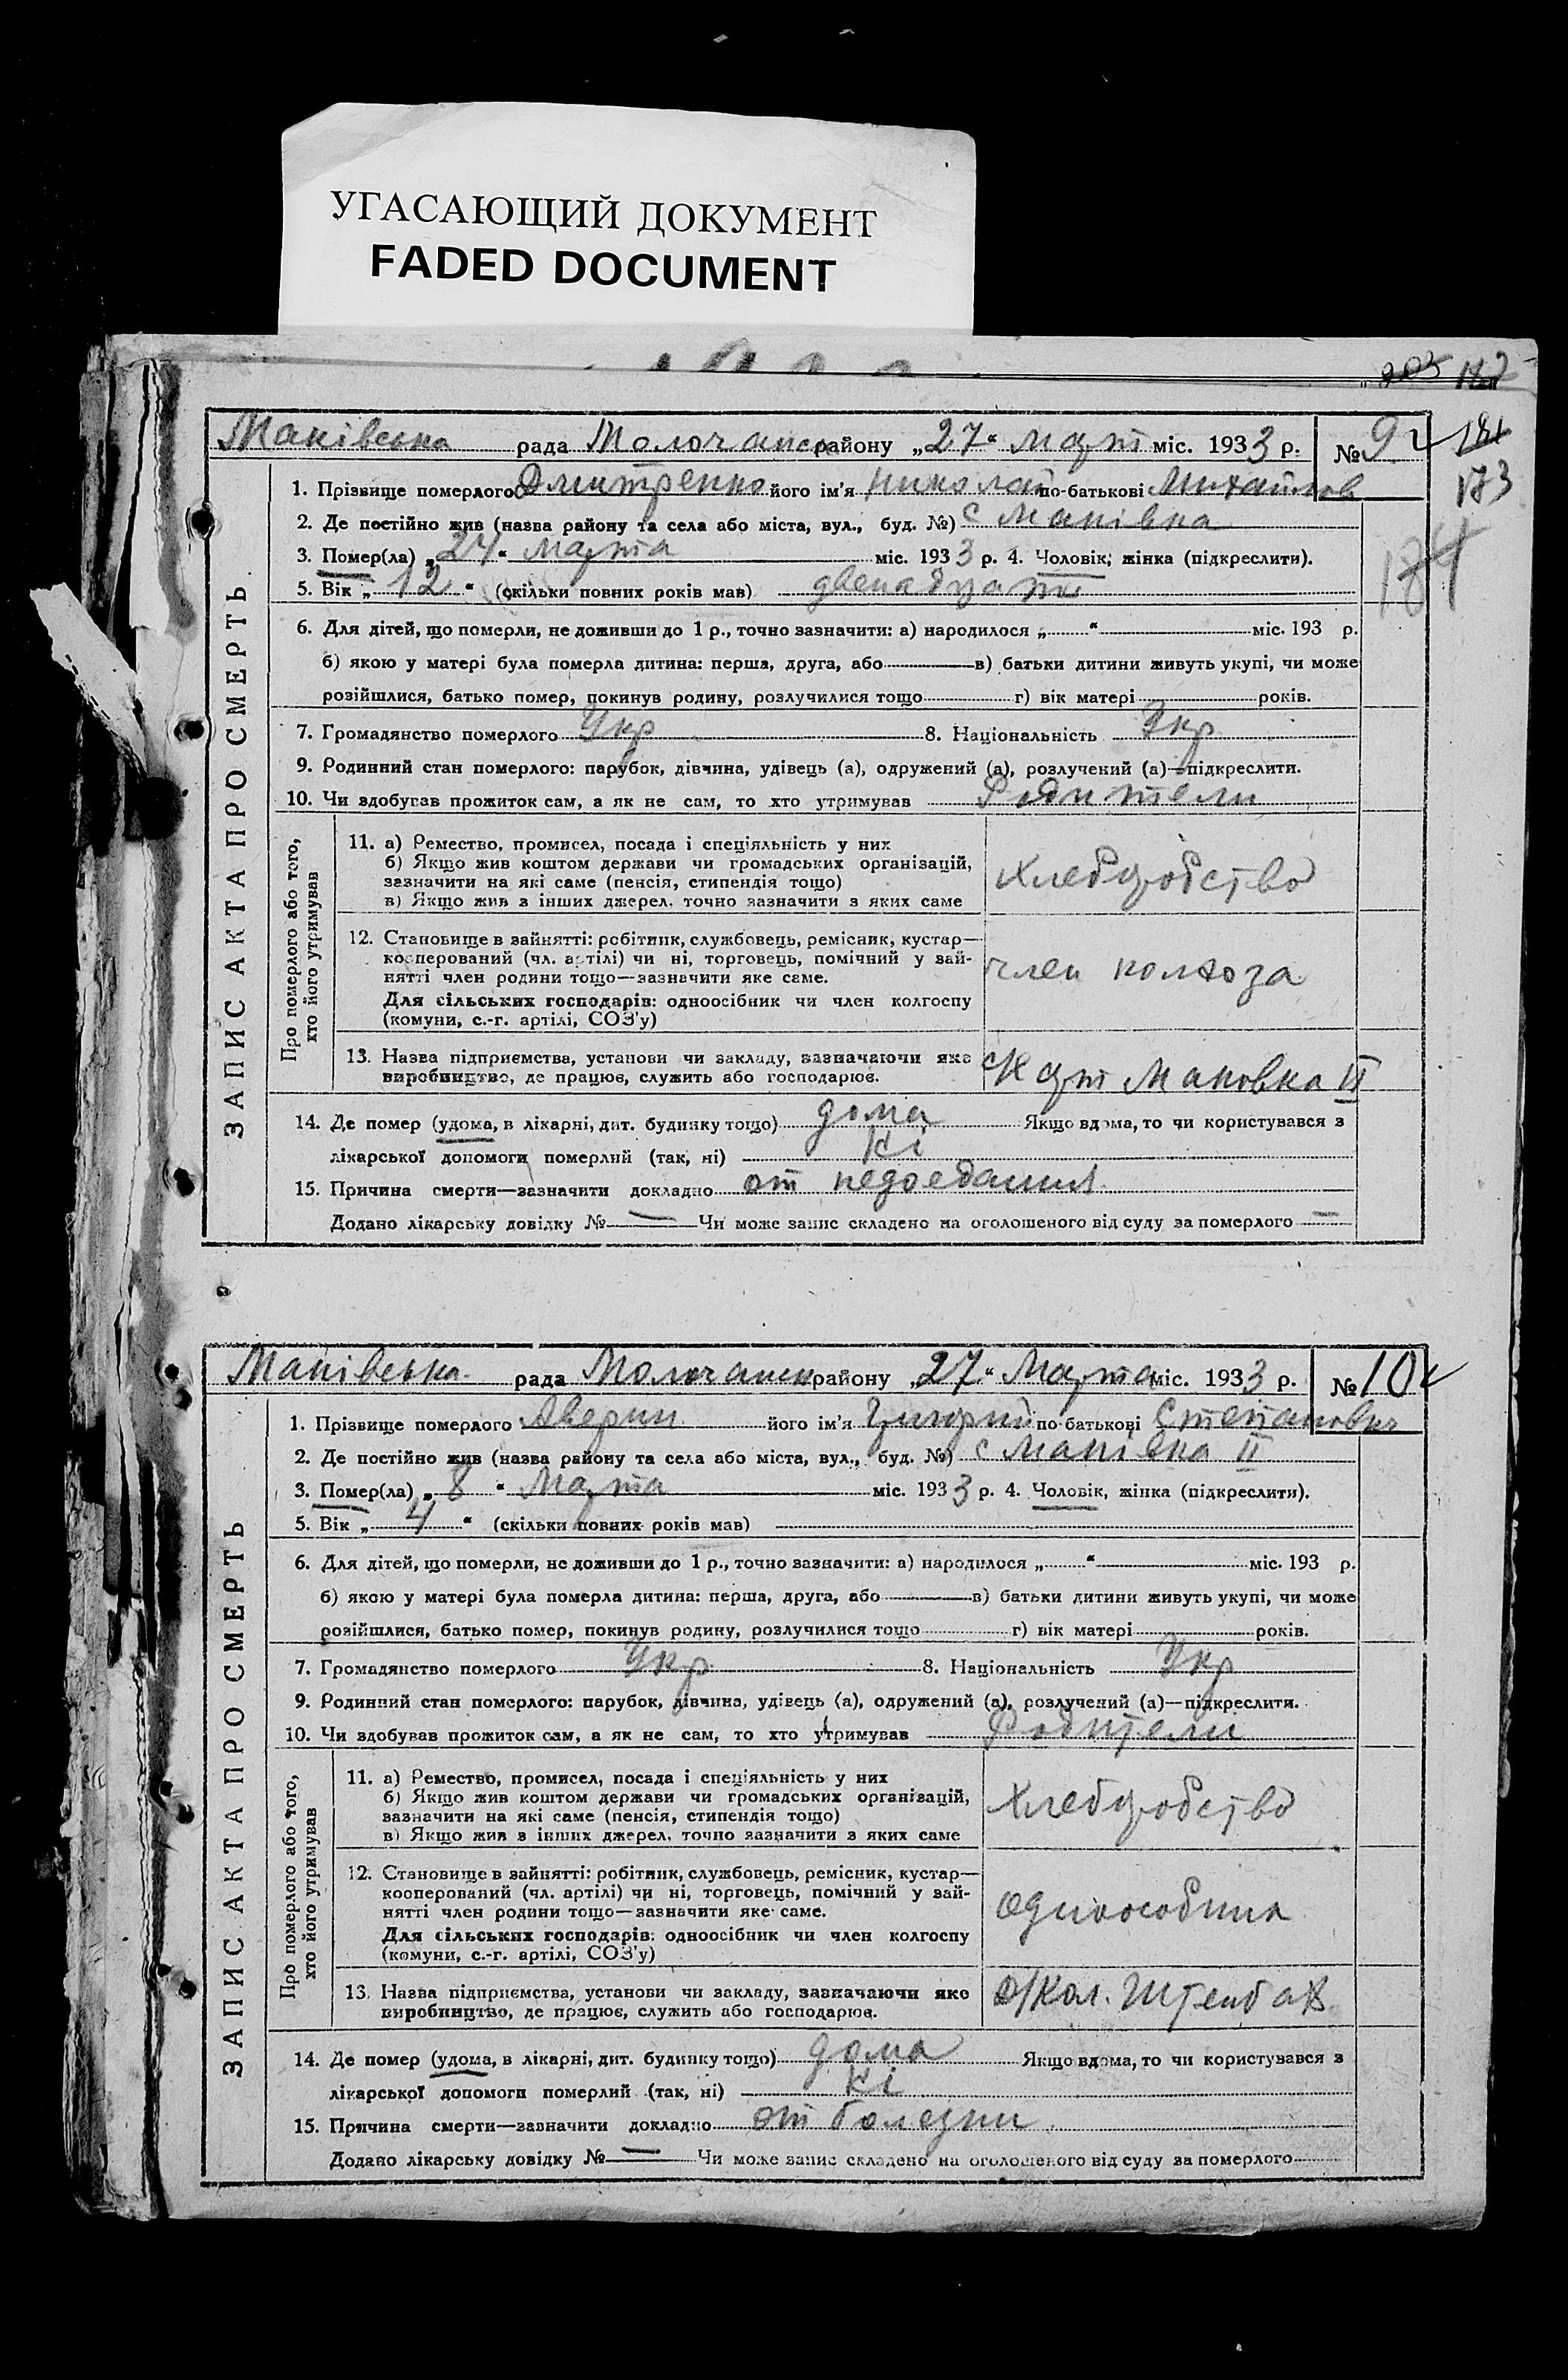 УГАСАЮЩИЙ ДОКУМЕНТ
FADED DOCUMENT
203 182
Маківська рада Молочанск району „27“ март міс. 1933 р. №9
181
173
184
1. Прізвище померлого Дмитренко його ім’я Николай по-батькові Михайлов
2. Де постійно жив (назва району та села або міста, вул., буд. №) с Маківка
3. Помер(ла) „27“ марта міс. 1933 р. 4. Чоловік, жінка (підкреслити).
5. Вік „12“ (скільки повних років мав) двенадцать
6. Для дітей, що померли, не доживши до 1 р., точно зазначити: а) народилося „ “ міс. 193 р.
б) якою у матері була померла дитина: перша, друга, або в) батьки дитини живуть укупі, чи може
розійшлися, батько помер, покинув родину, розлучилися тощо г) вік матері років.
7. Громадянство померлого Укр 8. Національність Укр
9. Родинний стан померлого: парубок, дівчина, удівець (а), одружений (а), розлучений (а)—підкреслити.
10. Чи здобував прожиток сам, а як не сам, то хто утримував Родители
ЗАПИС АКТА ПРО СМЕРТЬ.
Про померлого або того,
хто його утримував
11. а) Ремество, промисел, посада і спеціяльність у них
б) Якщо жив коштом держави чи громадських організацій,
зазначити на які саме (пенсія, стипендія тощо)
в) Якщо жив з інших джерел, точно зазначити з яких саме
хлеборобство
12. Становище в зайнятті: робітник, службовець, ремісник, кустар—
кооперований (чл. артілі) чи ні, торговець, помічний у зай-
нятті член родини тощо—зазначити яке саме.
Для сільських господарів: одноосібник чи член колгоспу
(комуни, с.-г. артілі, СОЗ’у)
член колхоза
13. Назва підприємства, установи чи закладу, зазначаючи яке
виробництво, де працює, служить або господарює.
Маковка II
14. Де помер (удома, в лікарні, дит. будинку тощо) дома Якщо вдома, то чи користувався з
лікарської допомоги померлий (так, ні) Ні
15. Причина смерти—зазначити докладно от недоедания
Додано лікарську довідку № — Чи може запис складено на оголошеного від суду за померлого —
Маківська рада Молочанск району „27“ Марта міс. 1933 р. №10
1. Прізвище померлого Аверин його ім’я Григорий по-батькові Степанович
2. Де постійно жив (назва району та села або міста, вул., буд. №) с Маківка II
3. Помер(ла) „8“ Марта міс. 1933 р. 4. Чоловік, жінка (підкреслити).
5. Вік „4“ (скільки повних років мав)
6. Для дітей, що померли, не доживши до 1 р., точно зазначити: а) народилося „ “ міс. 193 р.
б) якою у матері була померла дитина: перша, друга, або в) батьки дитини живуть укупі, чи може
розійшлися, батько помер, покинув родину, розлучилися тощо г) вік матері років.
7. Громадянство померлого Укр 8. Національність Укр
9. Родинний стан померлого: парубок, дівчина, удівець (а), одружений (а), розлучений (а)—підкреслити.
10. Чи здобував прожиток сам, а як не сам, то хто утримував Родители
ЗАПИС АКТА ПРО СМЕРТЬ
Про померлого або того,
хто його утримував
11. а) Ремество, промисел, посада і спеціяльність у них
б) Якщо жив коштом держави чи громадських організацій,
зазначити на які саме (пенсія, стипендія тощо)
в) Якщо жив з інших джерел, точно зазначити з яких саме
хлеборобство
12. Становище в зайнятті: робітник, службовець, ремісник, кустар—
кооперований (чл. артілі) чи ні, торговець, помічний у зай-
нятті член родини тощо—зазначити яке саме.
Для сільських господарів: одноосібник чи член колгоспу
(комуни, с.-г. артілі, СОЗ’у)
одноособник
13. Назва підприємства, установи чи закладу, зазначаючи яке
виробництво, де працює, служить або господарює.
Кол. Штенбах
14. Де помер (удома, в лікарні, дит. будинку тощо) дома Якщо вдома, то чи користувався з
лікарської допомоги померлий (так, ні) Ні
15. Причина смерти—зазначити докладно от болезни
Додано лікарську довідку № — Чи може запис складено на оголошеного від суду за померлого